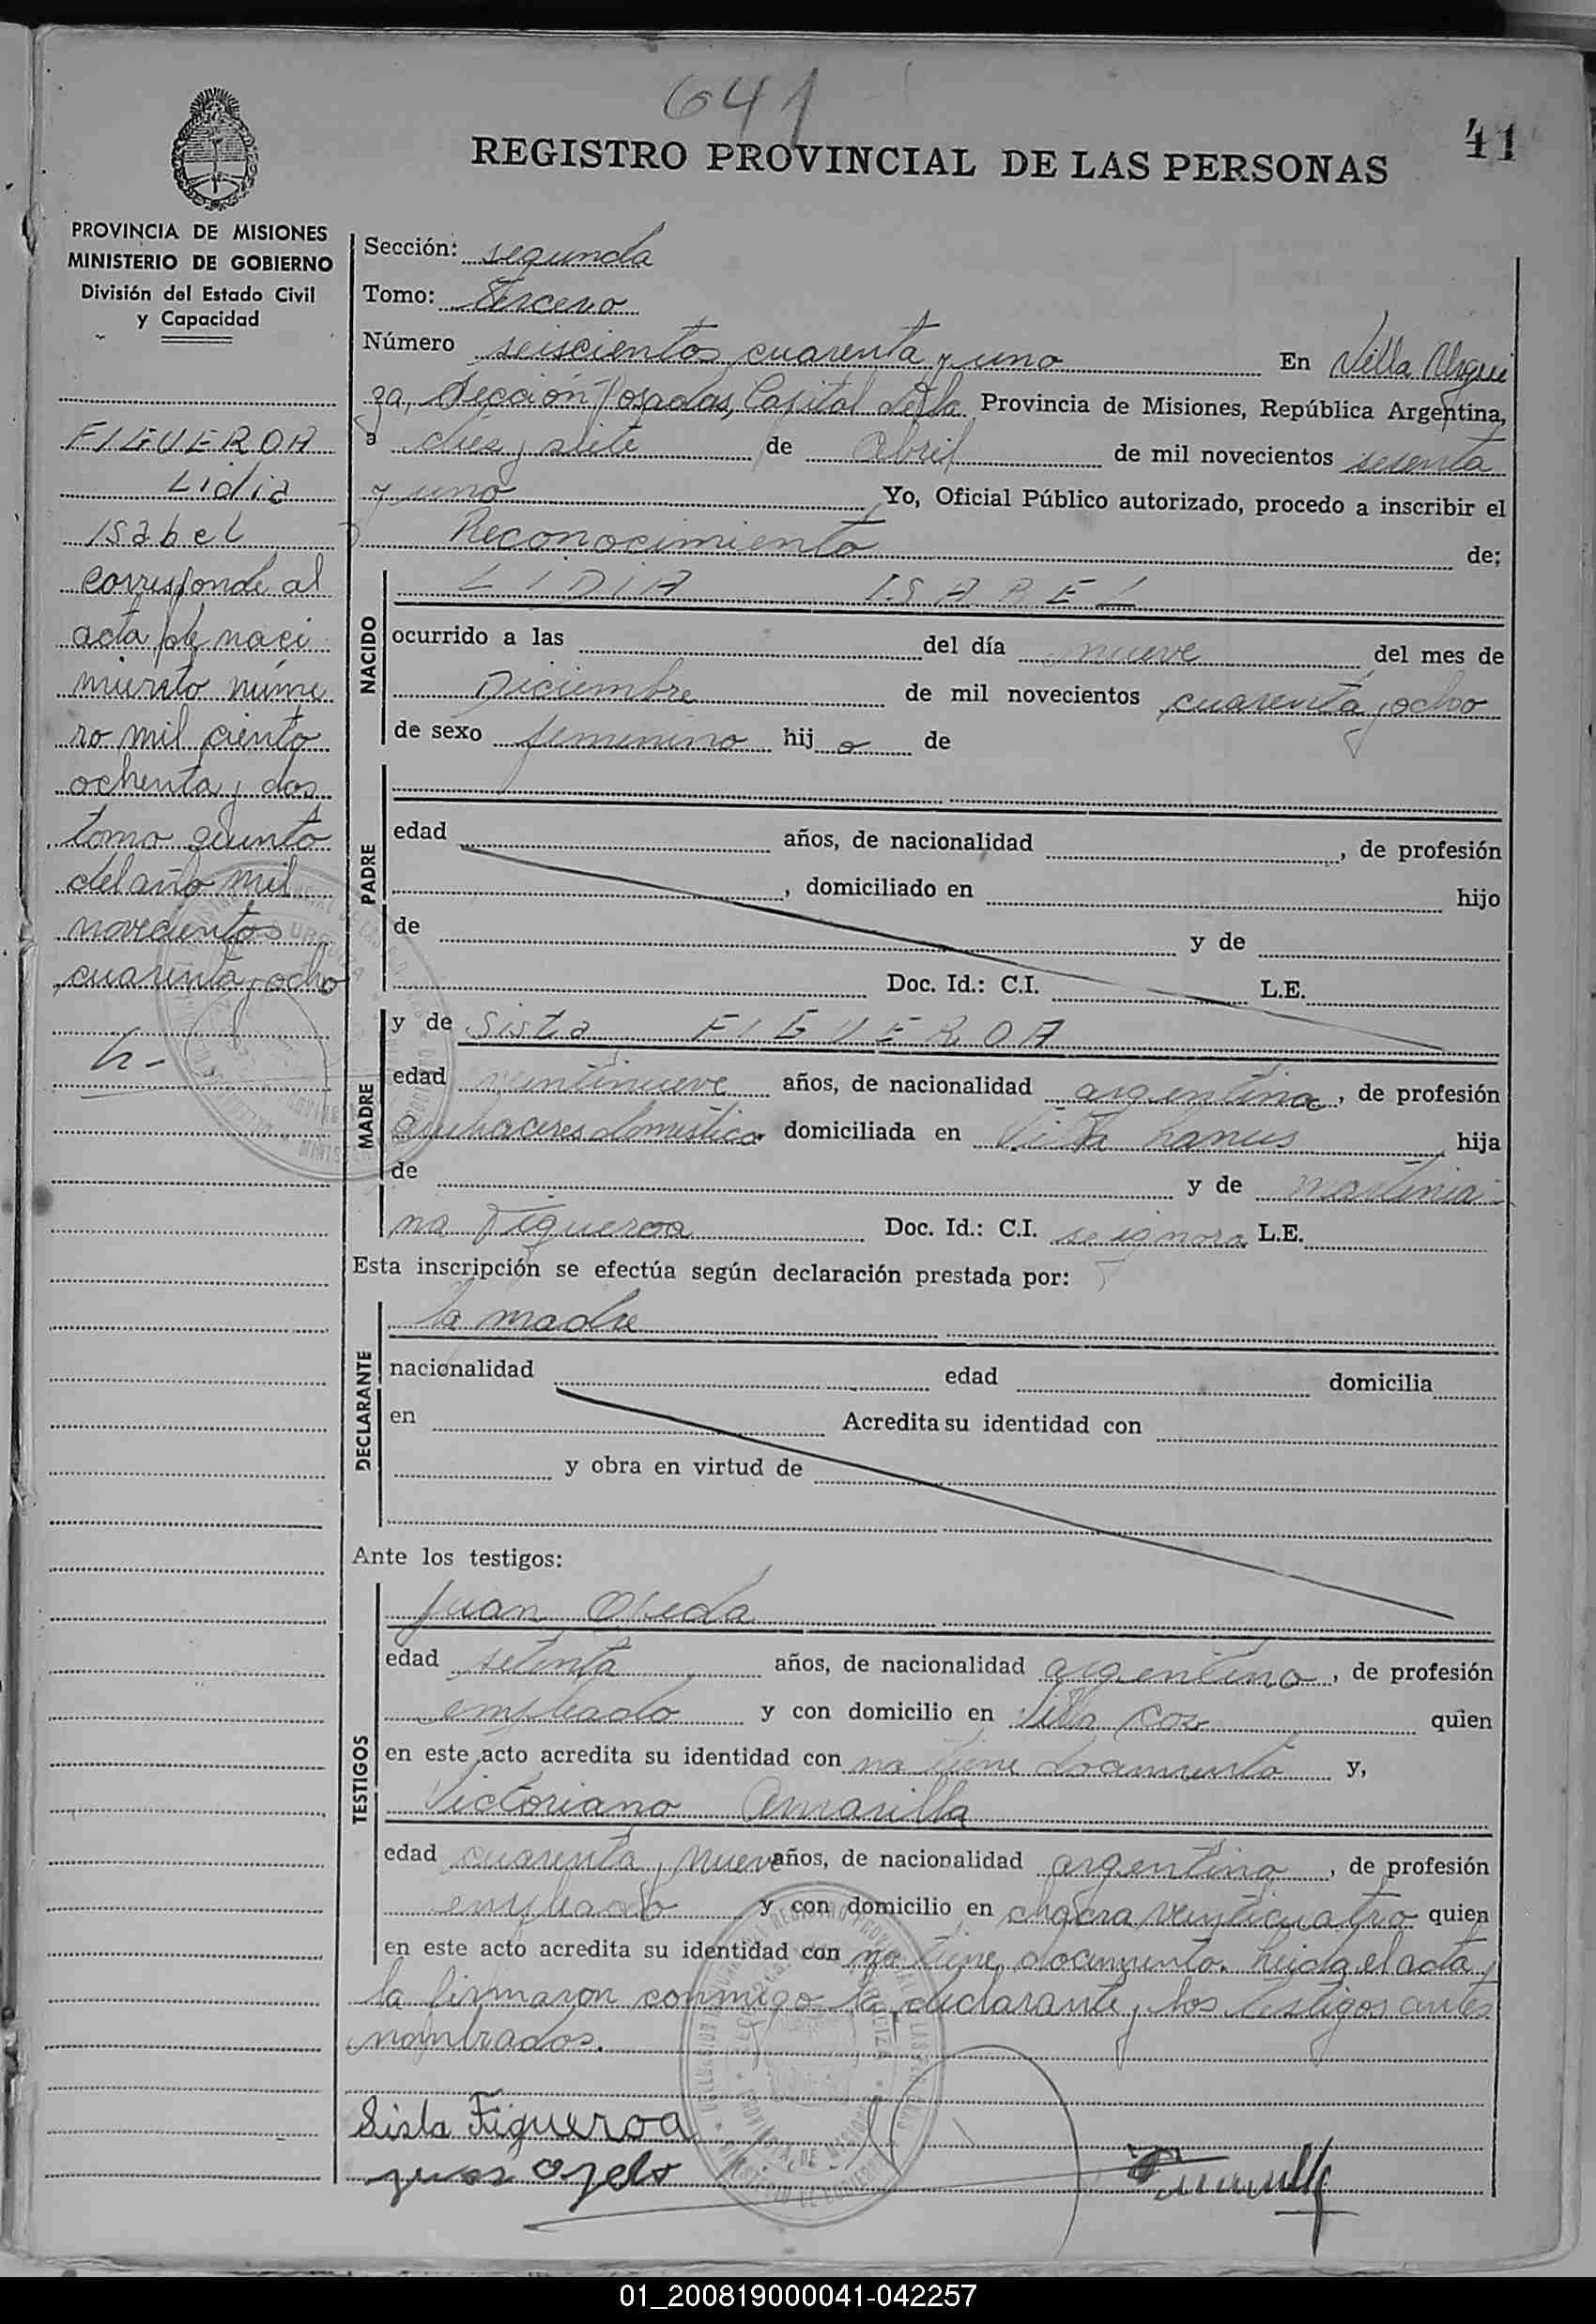 641
41
REGISTRO PROVINCIAL DE LAS PERSONAS
PROVINCIA DE MISIONES
MINISTERIO DE GOBIERNO
División del Estado Civil
y Capacidad
FIGUEROA
Lidia
Isabel
corresponde al
acta de naci
miento núme
ro mil ciento
ochenta y dos
tomo quinto
del año mil
novecientos
cuarenta y ocho
Sección: segunda
Tomo: Tercero
Número seiscientos cuarenta y uno En Villa Urqui
za, Sección Posadas, Capital de la Provincia de Misiones, República Argentina,
a diez y siete de Abril de mil novecientos sesenta
y uno Yo, Oficial Público autorizado, procedo a inscribir el
Reconocimiento de:
NACIDO
LIDIA ISABEL
ocurrido a las del día nueve del mes de
Diciembre de mil novecientos cuarenta y ocho
de sexo femenino hij a de
PADRE
edad años, de nacionalidad , de profesión
, domiciliado en hijo
de y de
Doc. Id.: C.I. L.E.
MADRE
y de Sista FIGUEROA
edad veintinueve años, de nacionalidad argentina, de profesión
quehaceres domestico domiciliada en Villa Lanus hija
de y de Martinia
na Figueroa Doc. Id.: C.I. se ignora L.E.
Esta inscripción se efectúa según declaración prestada por:
DECLARANTE
la madre
nacionalidad edad domicilia
en Acredita su identidad con
y obra en virtud de
Ante los testigos:
TESTIGOS
Juan Ojeda
edad setenta años, de nacionalidad argentino, de profesión
empleado y con domicilio en Villa quien
en este acto acredita su identidad con no tiene documento y,
Victoriano Amarilla
edad cuarenta y nueve años, de nacionalidad argentino, de profesión
empleado y con domicilio en chacra veinticuatro quien
en este acto acredita su identidad con no tiene documento. Leida el acta,
la firmaron conmigo la declarante y los testigos antes
nombrados.
Sista Figueroa
juan ojeda
01_200819000041-042257